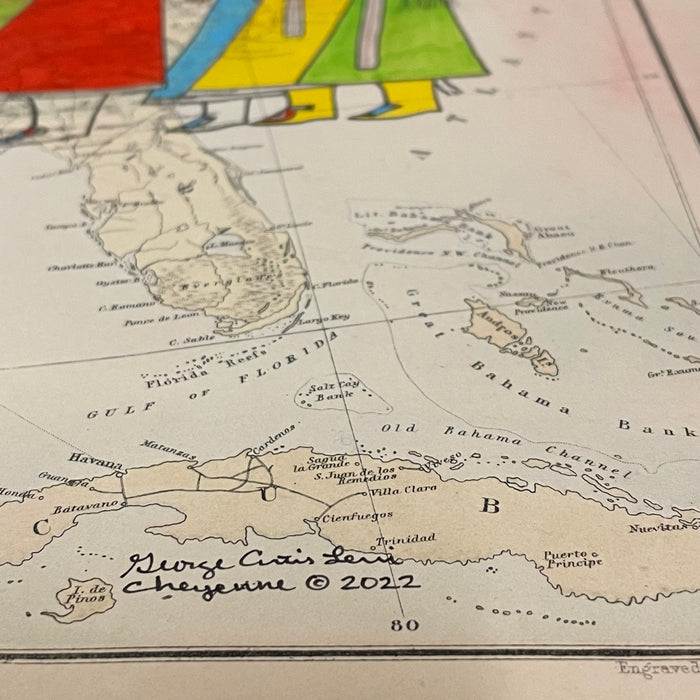 Lit. Bahama
Bank
Great
Abaco
Providence N.W. Chan.
Providence N.E. Chan.
Eleuthera
L. Macaco
Everglades
Charlotte Har.
Oyster B.
C. Romano
Ponce de Leon
C. Sable
C. Florida
Largo Key
Nassau
New
Providence
Andros
I.
Exuma
Sou
Grt. Exuma
Great Bahama Bank
Florida Reefs
GULF OF FLORIDA
Salt Cay
Bank
Old Bahama Channel
Havana
Matanzas
Cardenas
Guana
Honda
Batavano
Sagua
la Grande
S. Juan de los
Remedios
Villa Clara
Cienfuegos
Trinidad
C U B
Nuevitas
Puerto
Principe
I. de
Pinos
George Curtis Levi
Cheyenne © 2022
80
Engraved